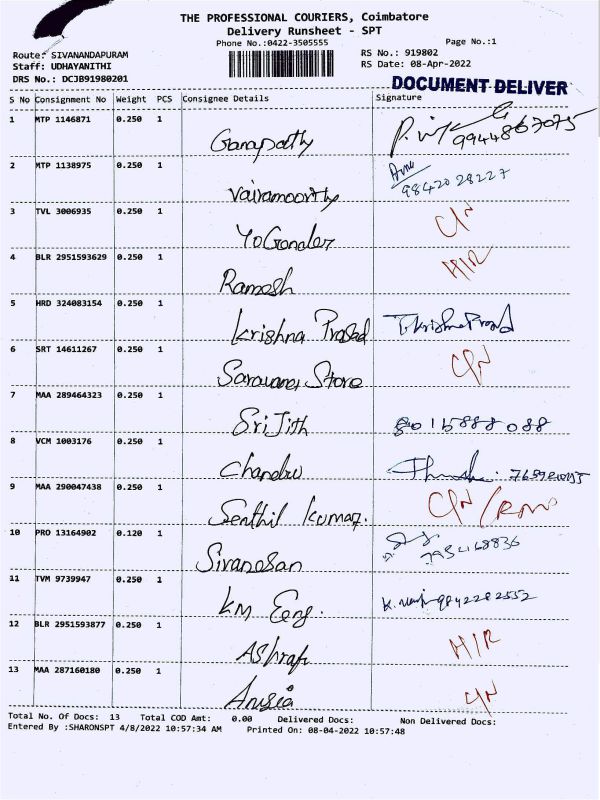 THE PROFESSIONAL COURIERS, Coimbatore
Delivery Runsheet - SPT
Phone No.:0422-3505555 Page No.:1
Route: SIVANANDAPURAM RS No.: 919802
Staff: UDHAYANITHI RS Date: 08-Apr-2022
DRS No.: DCJB91980201
DOCUMENT DELIVER
S No Consignment No Weight PCS Consignee Details Signature
1 MTP 1146871 0.250 1
Ganapathy 9944867075
2 MTP 1138975 0.250 1
Vairamoorthy 9842028227
3 TVL 3006935 0.250 1
YoGander C/N
4 BLR 2951593629 0.250 1 H/R
Ramesh
5 HRD 324083154 0.250 1
Krishna Prasad T.KrishnaPrasad
6 SRT 14611267 0.250 1 C/N
Saravana Store
7 MAA 289464323 0.250 1
SriJith 8015888088
8 VCM 1003176 0.250 1
Chandru
9 MAA 290047438 0.250 1
Senthil Kumar. C/N
10 PRO 13164902 0.120 1
Sivanesan
11 TVM 9739947 0.250 1
KM Eeng.
12 BLR 2951593877 0.250 1
Ashraf H/R
13 MAA 287160180 0.250 1
Anusia C/N
Total No. Of Docs: 13 Total COD Amt: 0.00 Delivered Docs: Non Delivered Docs:
Entered By :SHARONSPT 4/8/2022 10:57:34 AM Printed On: 08-04-2022 10:57:48